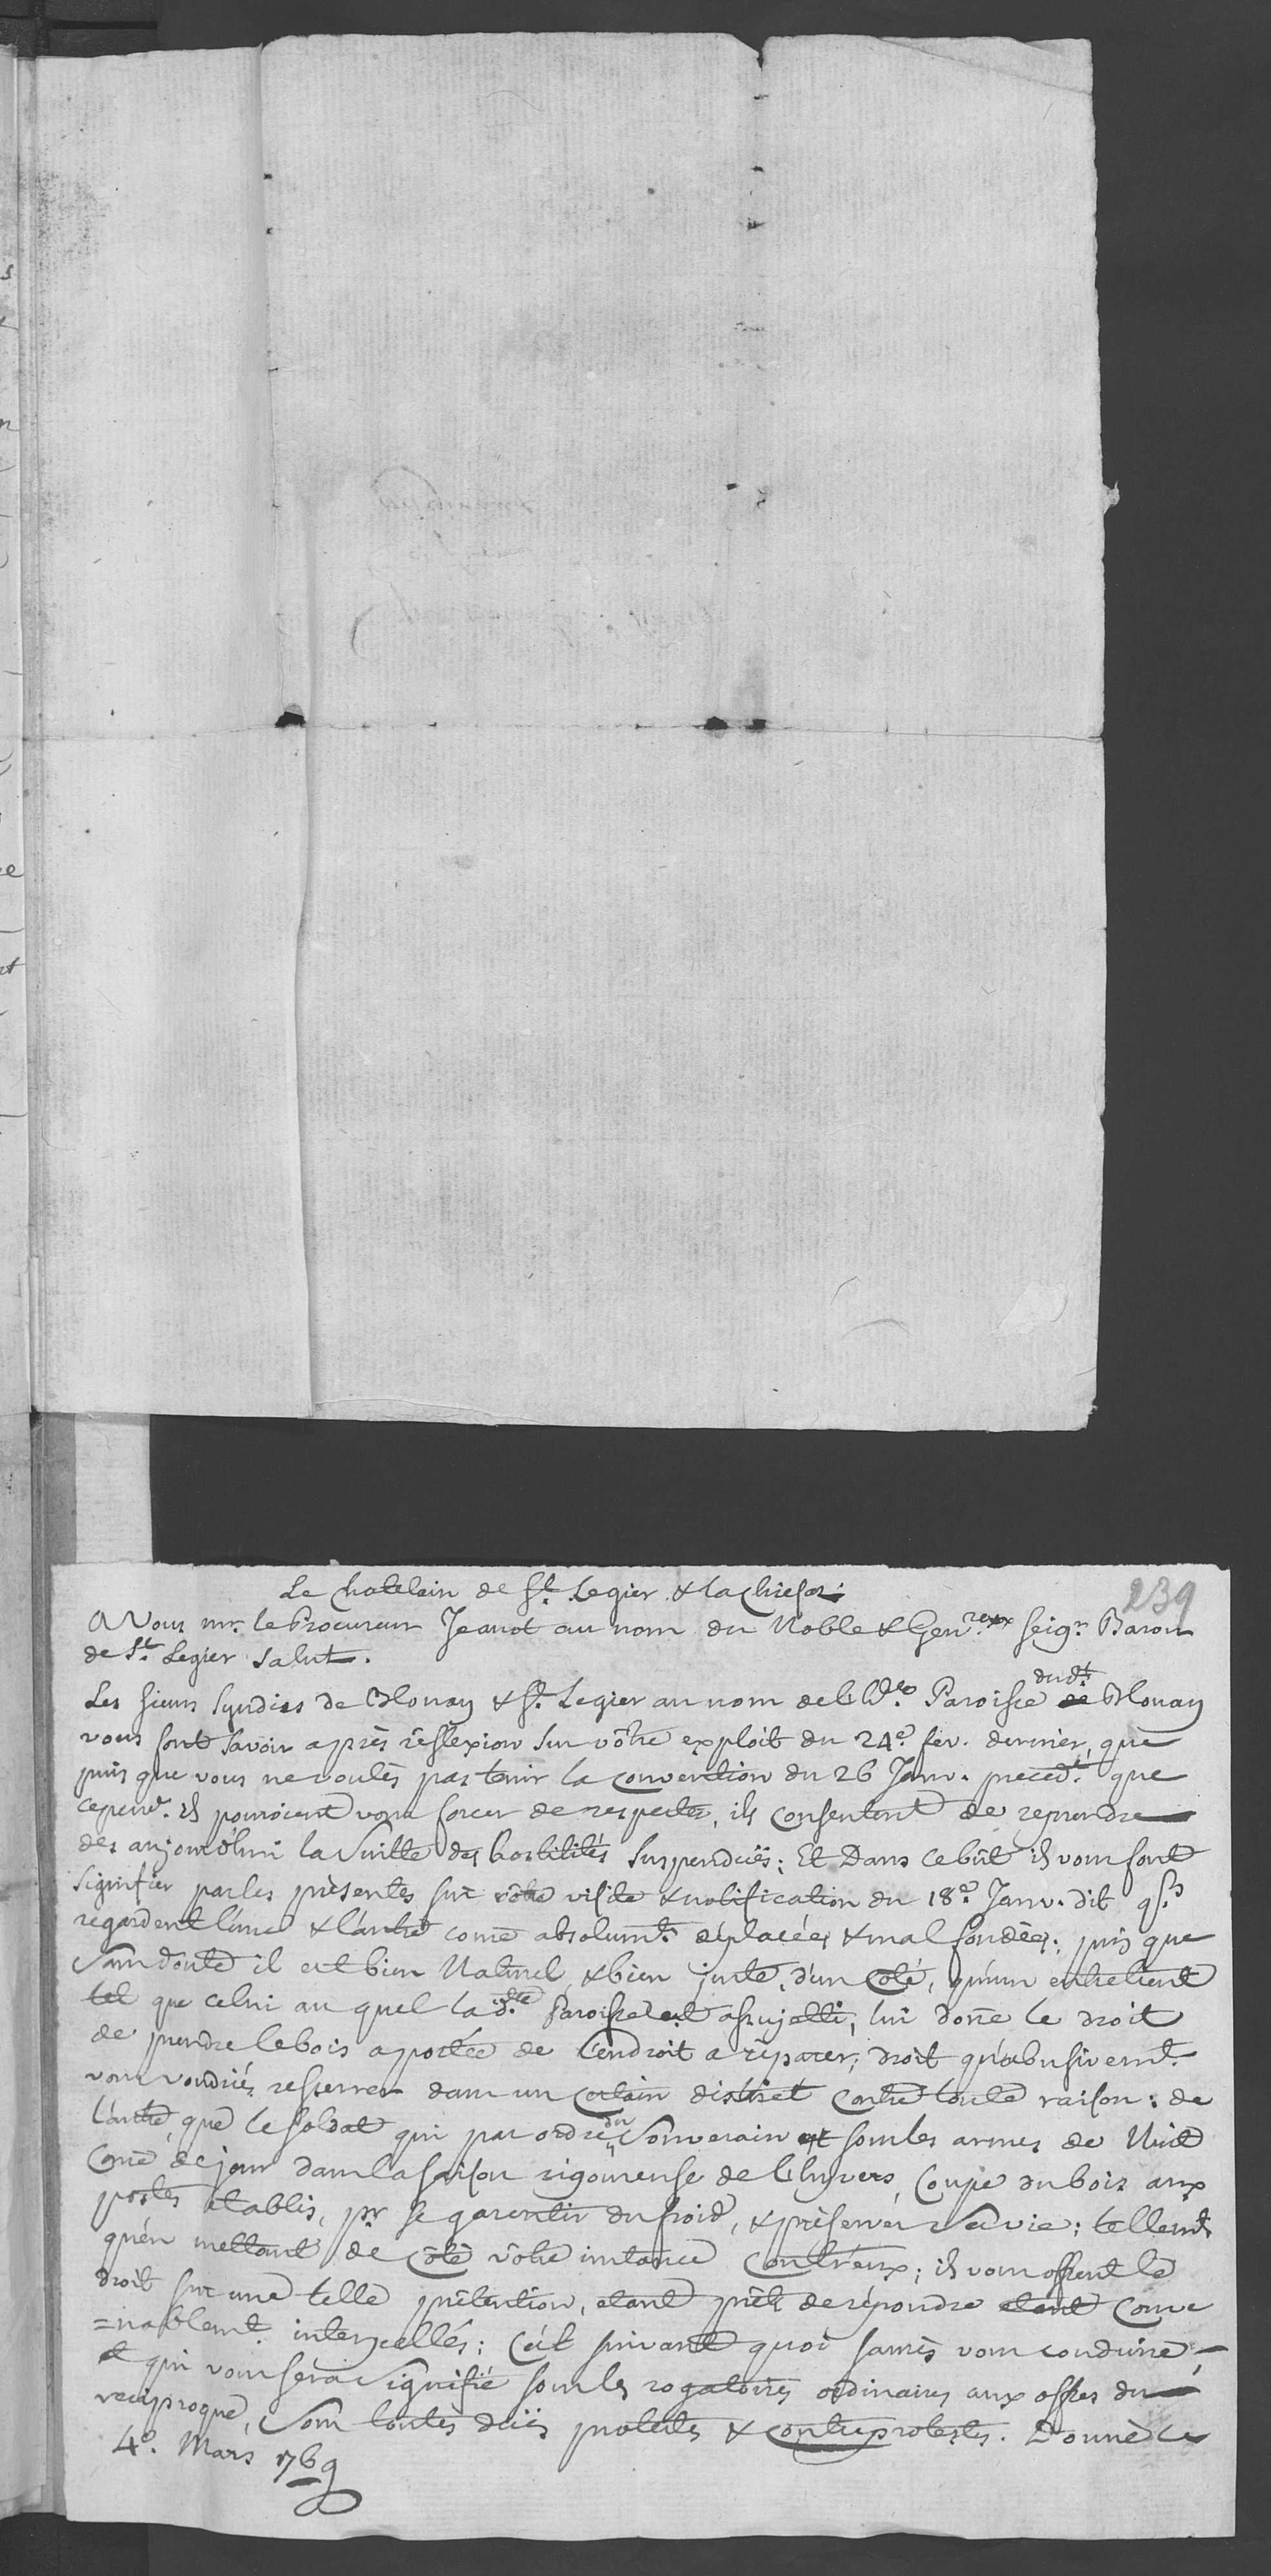 239
Le Chatelain de St. Legier & la Chiesaz:
A Vous mr. le Procureur Jeanot au nom du Noble & Gen.reux seigr. Baron
de St. Legier Salut.
Les sieurs Syndics de Blonay & St. Legier au nom de l'h.ble Paroisse dudt. Blonay
vous font savoir après réflexion sur vôtre exploit du 24e. fev. dernier, que
puis que vous ne voulés pas tenir la convention du 26 Janv. preced.t que
cepend.t ils pouroient vous forcer de respecter, ils consentent de reprendre
des aujourd'hui la suitte des hostilités suspendües; Et Dans ce bût ils vous font
signifier par les présentes sur vôtre visite & notification du 18e. Janv. dit qls
regardent l'une & l'autre come absolumt. déplacées & mal fondées; puis que
Sans doute il est bien Naturel, & bien juste, d'un Coté, qu'un entretient
tel que celui au quel la d.te Paroisse est assujetti, lui done le droit
de prendre le bois a portée de l'endroit a réparer; droit qu'abusivemt.
vous voudriés resserrer dans un certain district contre toute raison: de
l'autre, que le soldat qui par ordre du Souverain est sous les armes de Nuit
Come de jour dans la saison rigoureuse de l'hyvers, Coupe du bois aux
postes établis, pr se garentir du froid, & préserver sa vie; tellemt
qu'en mettant de Côté vôtre instance contr'eux; ils vous offrent le
droit sur une telle prétention, etant prêts de répondre etant conve
=nablemt. interpellés; C'est suivant quoi saurés vous conduire,
et qui vous sera Signifié sous les rogatoires ordinaires aux offres du
réciproque, Sous toutes dües protestes & contreprotestes. Donné ce
4e. Mars 1769